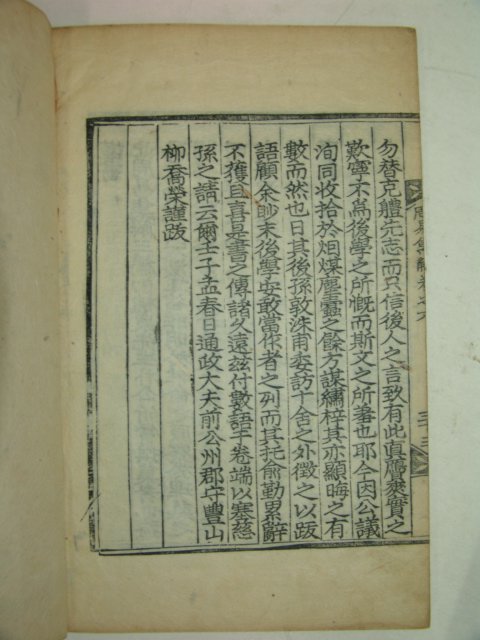 勿替克軆先志而只信後人之言致有此眞贋爽實之
歎寧不爲後學之所慨而斯文之所羞也耶今因公議
洵同收拾於炟煤塵蠹之餘方謀繡梓其亦顯晦之有
數而然也日其後孫敦洙甫委訪十舍之外徵之以跋
語顧余眇末後學安敢當作者之列而其托愈勤累辭
不獲且喜是書之傳諸久遠玆付數語于卷端以塞慈
孫之請云爾壬子孟春日通政大夫前公州郡守豐山
柳喬榮謹跋